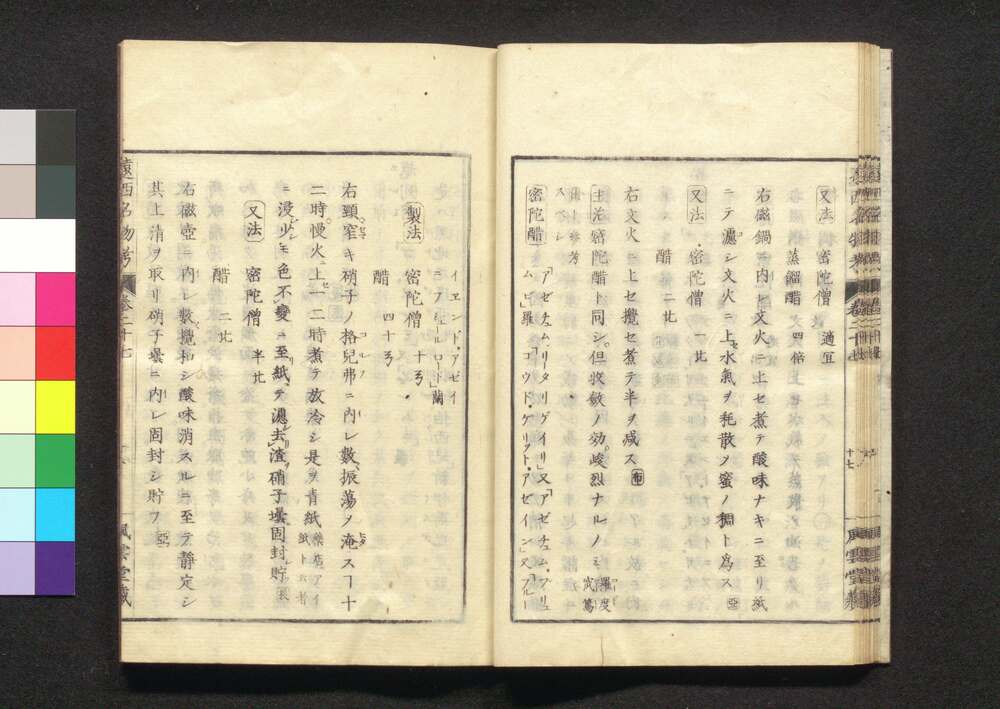 又法 密陀僧 適宜
蒸餾醋 四倍
右磁鍋ニ内レ文火ニ上セ煮テ酸味ナキニ至リ紙
ニテ濾シ文火ニ上セ水氣ヲ耗散ソ蜜ノ稠ト為ス
又法 密陀僧 一
醋 二
右文火ニ上セ攪セ煮テ半ヲ减ス
主治密陀醋ト同シ但收斂ノ効峻烈ナルノミ
密陀醋 「アゼチュム、リータリグイリ」又「アゼチュム、プリュ
ム」羅 「ゴウド、ゲリット、アゼイン」又「フルー
十七
風雲堂藏
イエンド、アゼイ
ン」蘭
製法 密陀僧 十
醋 四十
右頸窄キ硝子ノ格兒弗ニ内レ數振蕩ソ淹スヿ十
二時慢火ニ上一二時煮テ放冷シ是ヲ青紙
ニ浸少モ色不變ニ至紙テ濾去渣硝子壜固封貯
又法 密陀僧 半
醋 二
右磁壺ニ内レ數攪和シ酸味消スルニ至テ静定シ
其上清ヲ取リ硝子壜ニ内レ固封シ貯フ 亞
遠西名物考 卷二十七
風雲堂藏